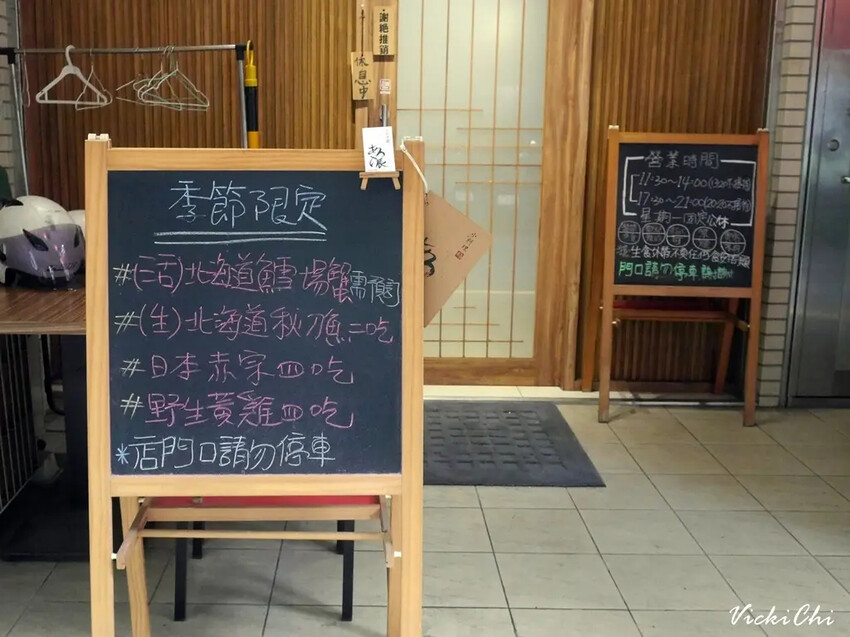 季節限定
#(活)北海道鱈場蟹需預訂
#(生)北海道秋刀魚二吃
#日本赤宗四吃
#野生黃雞四吃
*店門口請勿停車
謝絕推銷
休息中
營業時間
11:30~14:00
17:30~21:00
星期一固定公休
門口請勿停車謝謝
VickiChi